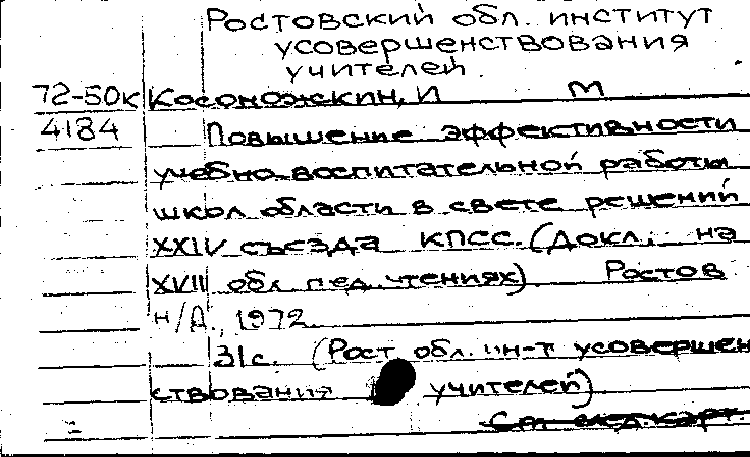 Ростовский обл. институт
усовершенствования
учителей.
72-50к Косоножкин, И М
4184 Повышение эффективности
учебно-воспитательной работы
школ области в свете решений
XXIV съезда КПСС. (Докл. на
XVIII обл. пед. чтениях) Ростов
н/Д., 1972.
31с. (Рост. обл. ин-т усовершен
ствования учителей)
См. след. карт.